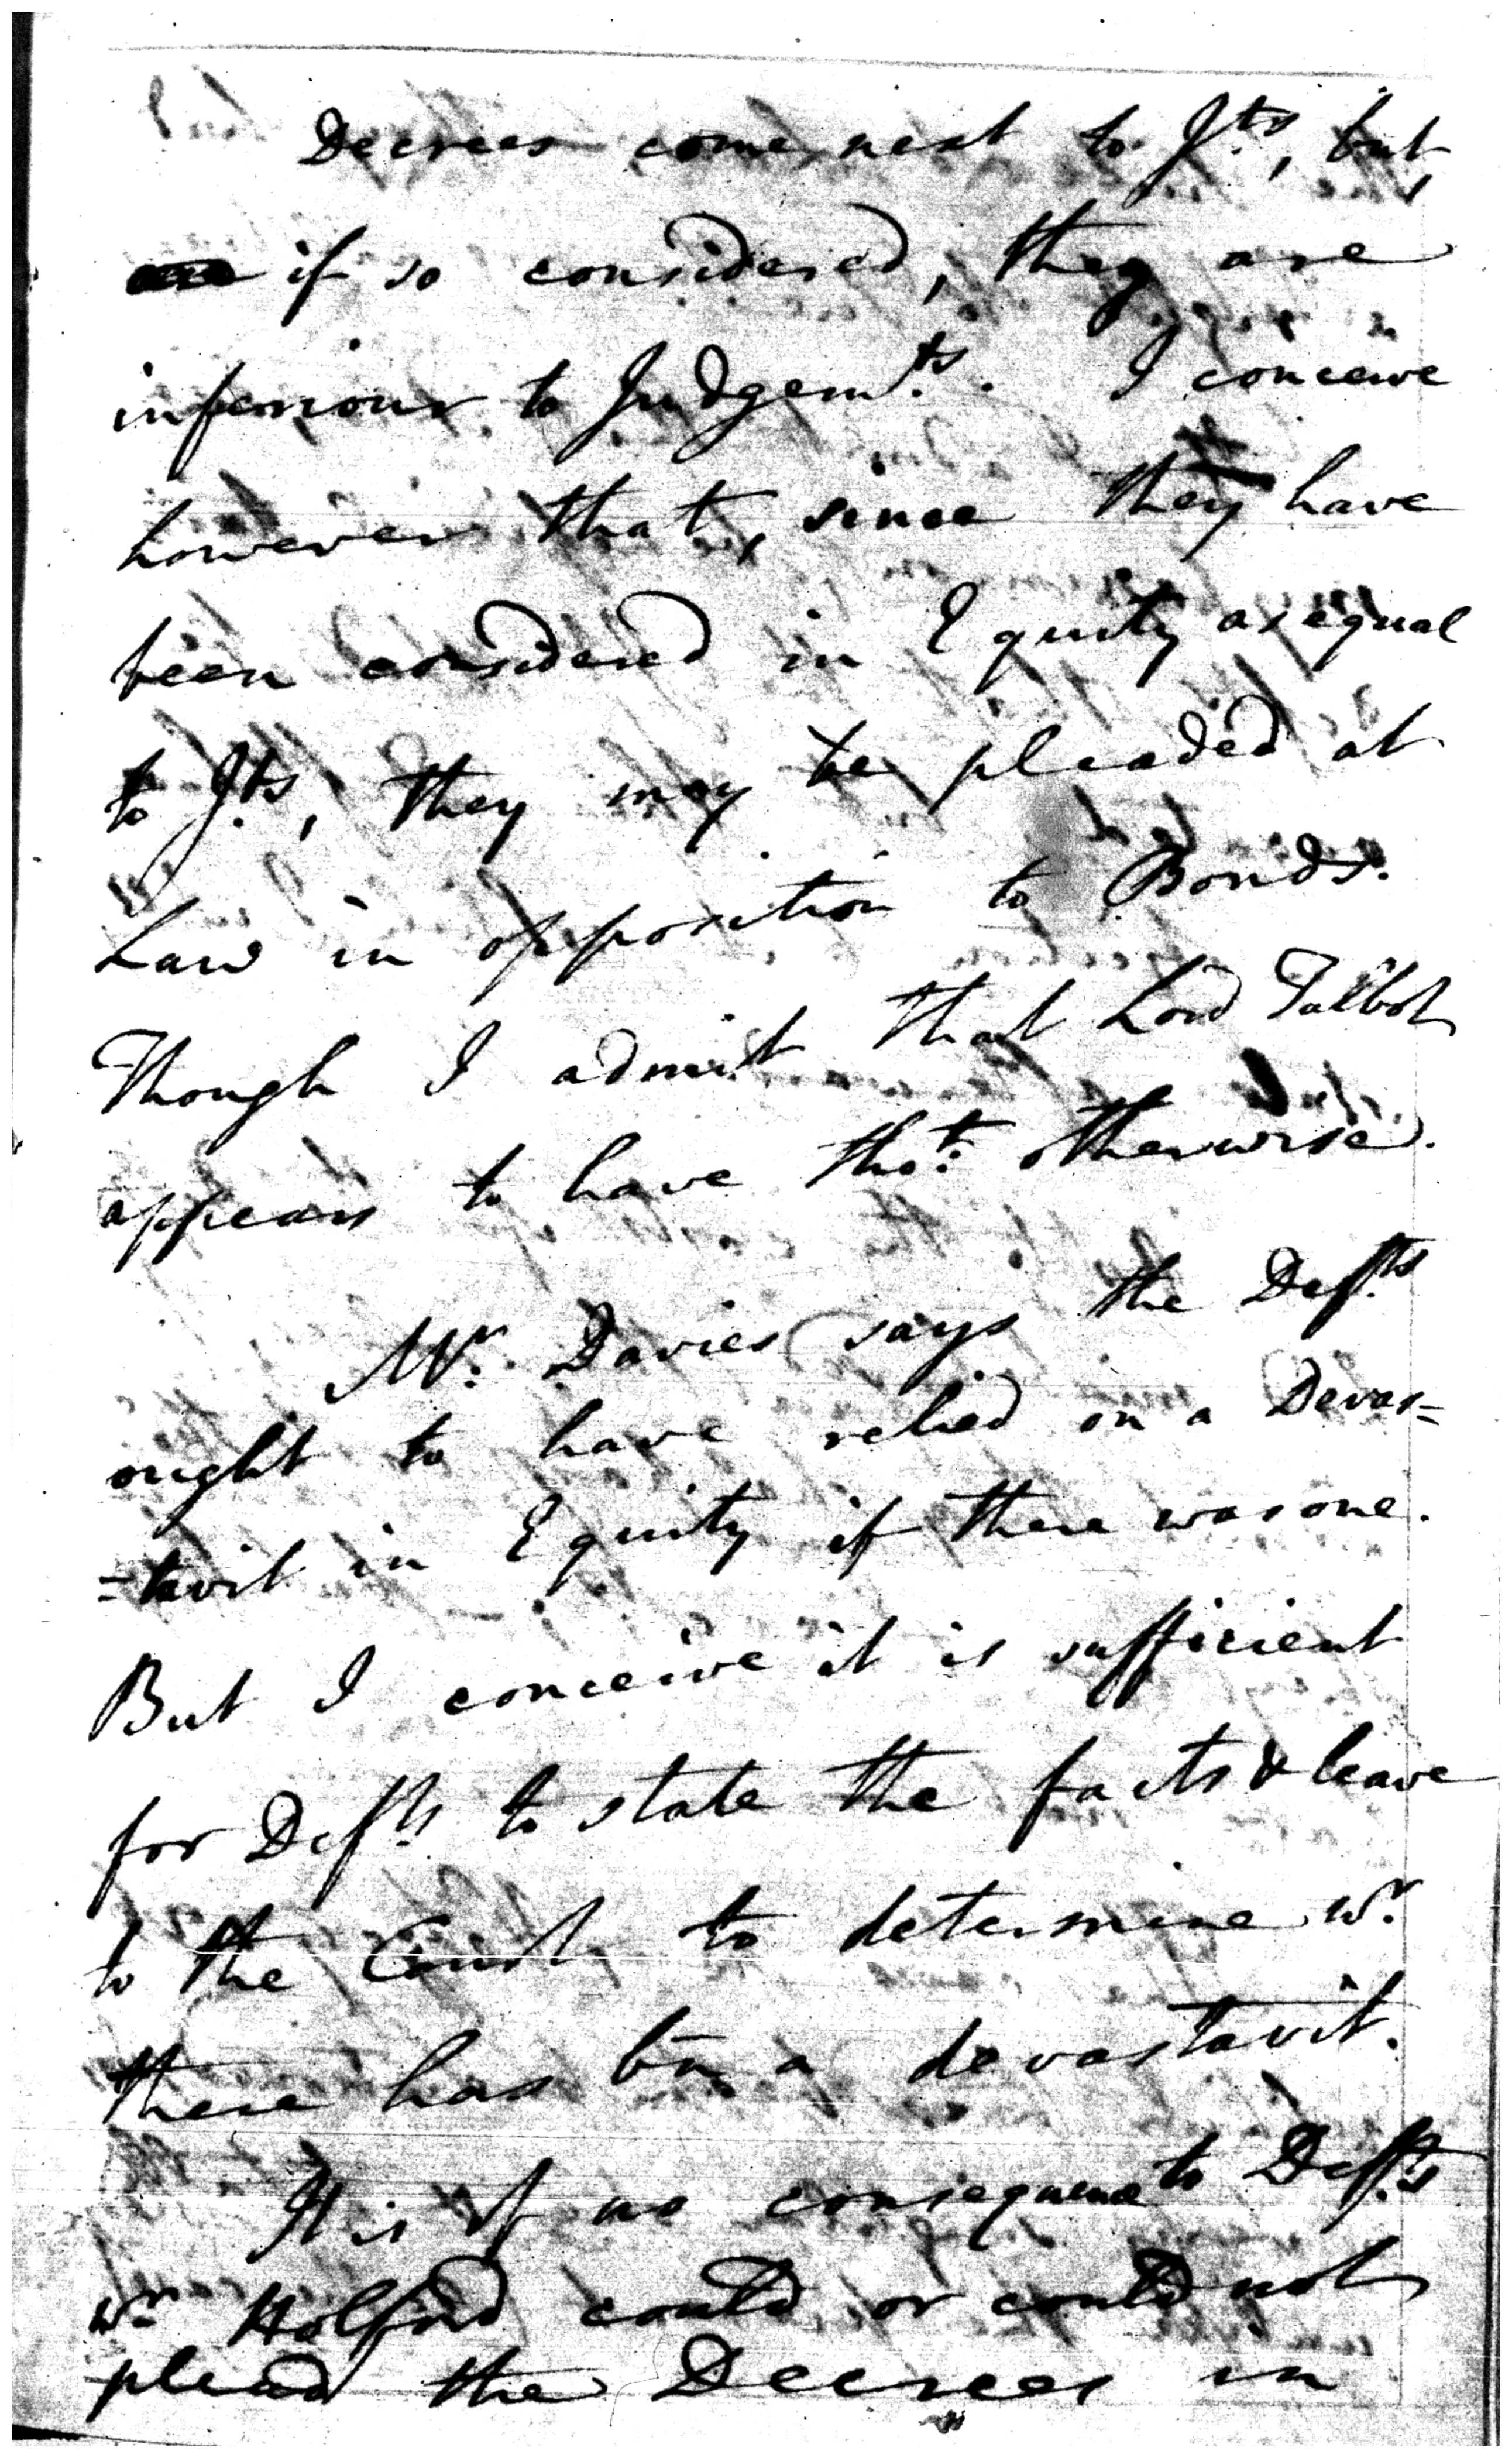 Decrees come next to Jts, but
if so considered, they are
inferiour to Judgemts. I conceive
however that, since they have
been considered in Equity as equal
to Jts, they may be pleaded at
Law in opposition to Bonds.
Though I admit that Lord Talbot
appears to have thot. otherwise.
Mr. Davies says the Defts
ought to have relied on a Devas=
=tavit in Equity if there was one.
But I conceive it is sufficient
for Defts to state the facts & leave
to the Court to determine wr.
there has bn a devastavit.
It is of no consequence to Defts
wr Holford could or could not
plead the Decrees in